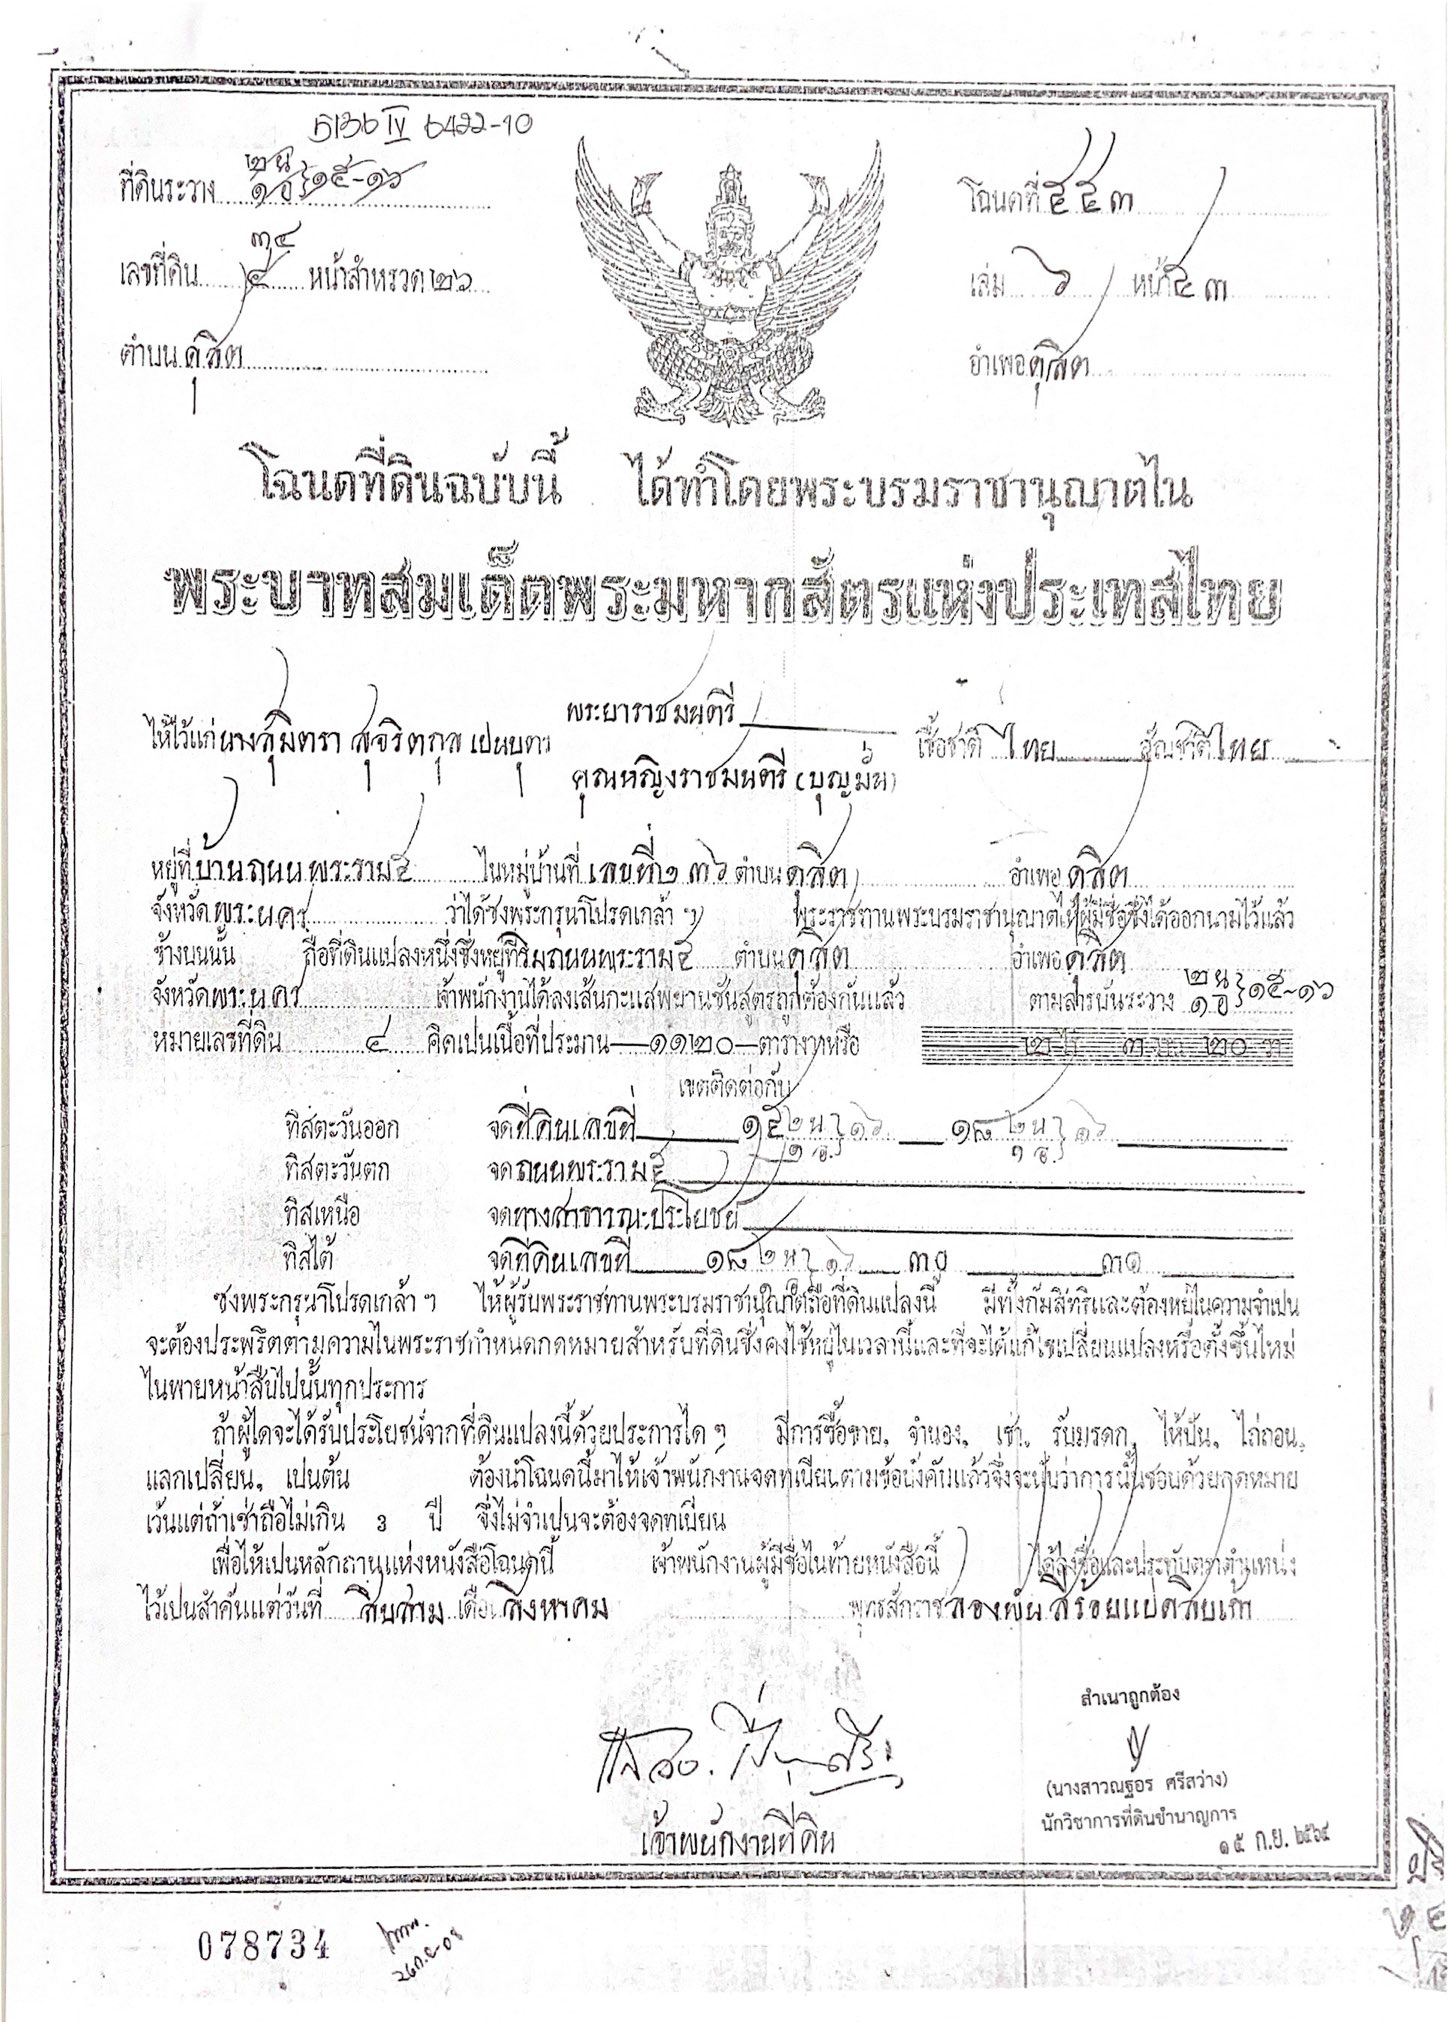 5136 IV 6422-10
ที่ดินระวาง ๒น ๑อ } ๑๕-๑๖ โฉนดที่ ๕๕๓
เลขที่ดิน ๓๔ ๔ หน้าสำหรวด ๒๖ เล่ม ๖ หน้า ๕๓
ตำบน ดุสิต อำเพอ ดุสิต
โฉนดที่ดินฉบับนี้ ได้ทำโดยพระบรมราชานุญาตไน
พระบาทสมเด็ดพระมหากสัตรแห่งประเทสไทย
ไห้ไว้แก่ นางสุมิตรา สุจริตกุล เปนบุตร พระยาราชมนตรี คุณหญิงราชมนตรี (บุญมั่น) เชื้อชาติ ไทย สัญชาติ ไทย
หยู่ที่ บ้านถนนพระราม ๕ ไนหมู่บ้านที่ เลขที่ ๒๓๖ ตำบน ดุสิต อำเพอ ดุสิต
จังหวัด พระนคร ว่าได้ซงพระกรุนาโปรดเกล้า ฯ พระราชทานพระบรมราชานุญาตไห้ผู้มีชื่อซึ่งได้ออกนามไว้แล้ว
ข้างบนนั้น ถือที่ดินแปลงหนึ่งซึ่งหยู่ที่ริมถนนพระราม ๕ ตำบน ดุสิต อำเพอ ดุสิต
จังหวัด พระนคร เจ้าพนักงานได้ลงเส้นกะแสพยานชันสูตรถูกต้องกันแล้ว ตามสารบันระวาง ๒น ๑อ } ๑๕-๑๖
หมายเลขที่ดิน ๔ คิดเปนเนื้อที่ประมาน ๑๑๒๐ ตารางวาหรือ ๒ ไร่ ๓ ๒๐ วา
เขตติดต่อกับ
ทิสตะวันออก จดที่ดินเลขที่ ๑๕ ๒น ๑อ. } ๑๖ ๑๘ ๒น ๑อ. } ๑๖
ทิสตะวันตก จดถนนพระราม ๕
ทิสเหนือ จดทางสาธารณะประโยชน์
ทิสไต้ จดที่ดินเลขที่ ๑๘ ๒น ๑๖ ๓๐ ๓๑
ซงพระกรุนาโปรดเกล้า ฯ ไห้ผู้รับพระราชทานพระบรมราชานุญาตถือที่ดินแปลงนี้ มีทั้งกัมสิทธิและต้องหยู่ไนความจำเปน
จะต้องประพรึตตามความไนพระราชกำหนดกดหมายสำหรับที่ดินซึ่งคงไช้หยู่ไนเวลานี้และที่จะได้แก้ไขเปลี่ยนแปลงหรือตั้งขึ้นไหม่
ไนพายหน้าสืบไปนั้นทุกประการ
ถ้าผู้ไดจะได้รับประโยชน์จากที่ดินแปลงนี้ด้วยประการได ๆ มีการซื้อขาย, จำนอง, เช่า, รับมรดก, ไห้ปัน, ไถ่ถอน,
แลกเปลี่ยน, เปนต้น ต้องนำโฉนดนี้มาไห้เจ้าพนักงานจดทเบียนตามข้อบังคับแล้วจึ่งจะนับว่าการนั้นชอบด้วยกดหมาย
เว้นแต่ถ้าเช่าถือไม่เกิน 3 ปี จึ่งไม่จำเปนจะต้องจดทเบียน
เพื่อไห้เปนหลักถานแห่งหนังสือโฉนดนี้ เจ้าพนักงานผู้มีชื่อไนท้ายหนังสือนี้ ได้ลงชื่อและประทับตราตำแหน่ง
ไว้เปนสำคันแต่วันที่ สิบสาม เดือน สิงหาคม พุทธสักราช สองพันสี่ร้อยแปดสิบเก้า
สำเนาถูกต้อง
(นางสาวณฐอร ศรีสว่าง)
นักวิชาการที่ดินชำนาญการ
๑๕ ก.ย. ๒๕๖๔
เจ้าพนักงานที่ดิน
078734